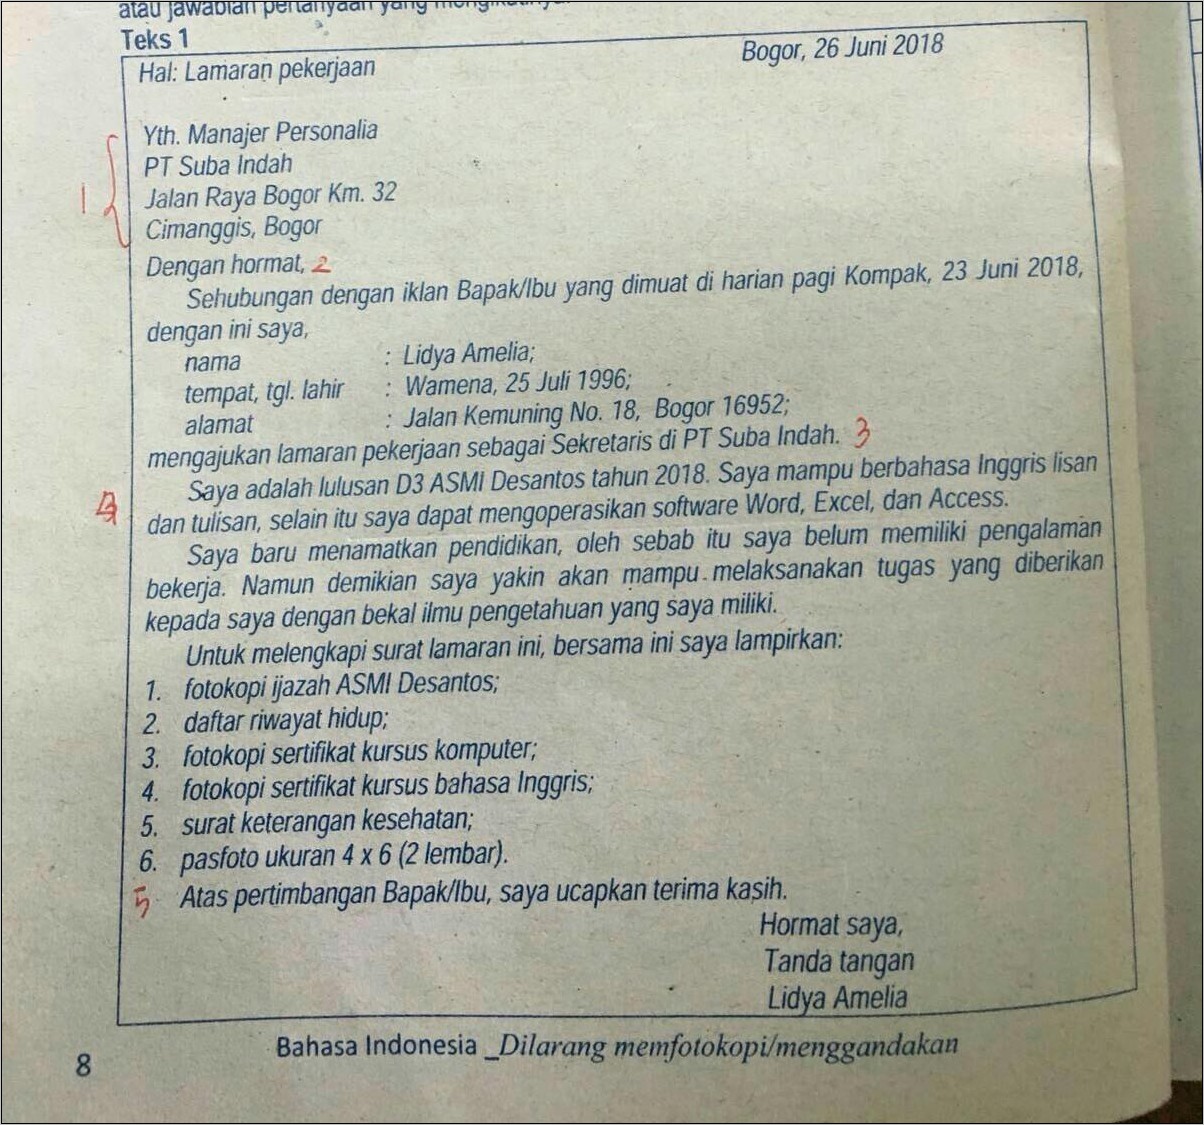 atau jawablah pertanyaan yang
Teks 1
Hal: Lamaran pekerjaan Bogor, 26 Juni 2018
Yth. Manajer Personalia
1 PT Suba Indah
Jalan Raya Bogor Km. 32
Cimanggis, Bogor
Dengan hormat, 2
Sehubungan dengan iklan Bapak/Ibu yang dimuat di harian pagi Kompak, 23 Juni 2018,
dengan ini saya,
nama : Lidya Amelia;
tempat, tgl. lahir : Wamena, 25 Juli 1996;
alamat : Jalan Kemuning No. 18, Bogor 16952;
mengajukan lamaran pekerjaan sebagai Sekretaris di PT Suba Indah. 3
Saya adalah lulusan D3 ASMI Desantos tahun 2018. Saya mampu berbahasa Inggris lisan
dan tulisan, selain itu saya dapat mengoperasikan software Word, Excel, dan Access.
Saya baru menamatkan pendidikan, oleh sebab itu saya belum memiliki pengalaman
bekerja. Namun demikian saya yakin akan mampu melaksanakan tugas yang diberikan
kepada saya dengan bekal ilmu pengetahuan yang saya miliki.
Untuk melengkapi surat lamaran ini, bersama ini saya lampirkan:
1. fotokopi ijazah ASMI Desantos;
2. daftar riwayat hidup;
3. fotokopi sertifikat kursus komputer;
4. fotokopi sertifikat kursus bahasa Inggris;
5. surat keterangan kesehatan;
6. pasfoto ukuran 4 x 6 (2 lembar).
5 Atas pertimbangan Bapak/Ibu, saya ucapkan terima kasih.
Hormat saya,
Tanda tangan
Lidya Amelia
8 Bahasa Indonesia _Dilarang memfotokopi/menggandakan